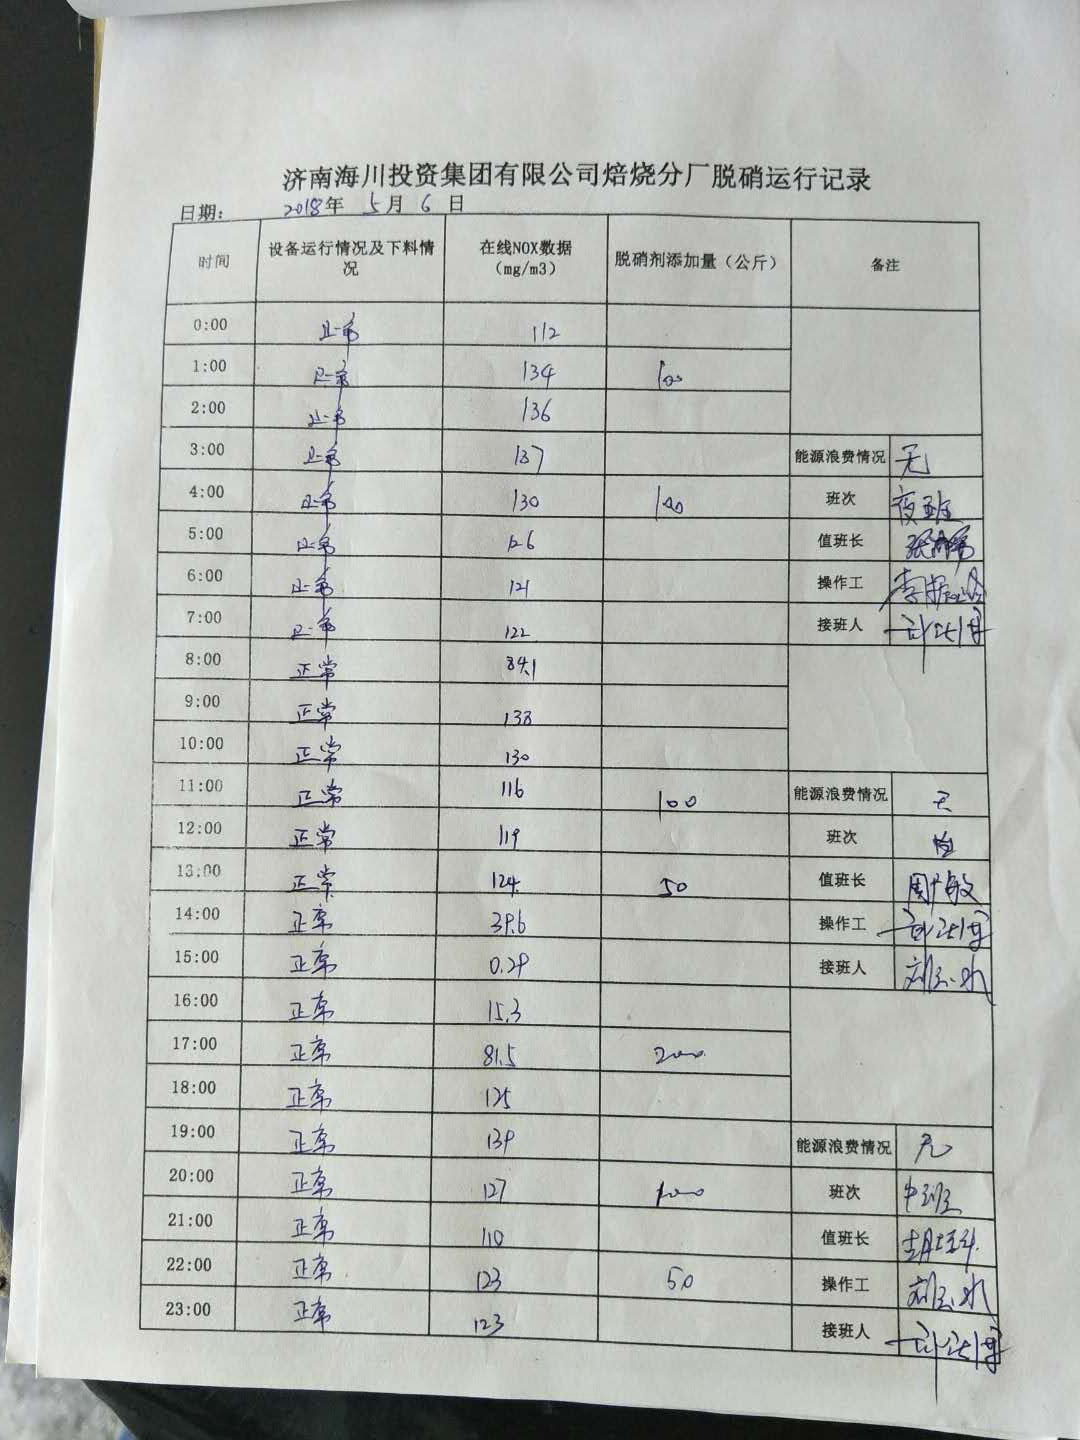 济南海川投资集团有限公司焙烧分厂脱硝运行记录
日期： 2018年 5月 6日
时间 设备运行情况及下料情况 在线NOX数据（mg/m3） 脱硝剂添加量（公斤） 备注
0:00 正常 112
1:00 正常 134 100
2:00 正常 136
3:00 正常 137 能源浪费情况 无
4:00 正常 130 100 班次 夜班
5:00 正常 126 值班长
6:00 正常 121 操作工
7:00 正常 122 接班人
8:00 正常 84.1
9:00 正常 138
10:00 正常 130
11:00 正常 116 100 能源浪费情况 无
12:00 正常 119 班次
13:00 正常 124 50 值班长
14:00 正常 39.6 操作工
15:00 正常 0.29 接班人
16:00 正常 15.3
17:00 正常 81.5 200
18:00 正常 125
19:00 正常 139 能源浪费情况 无
20:00 正常 127 100 班次 中班
21:00 正常 110 值班长
22:00 正常 123 50 操作工
23:00 正常 123 接班人